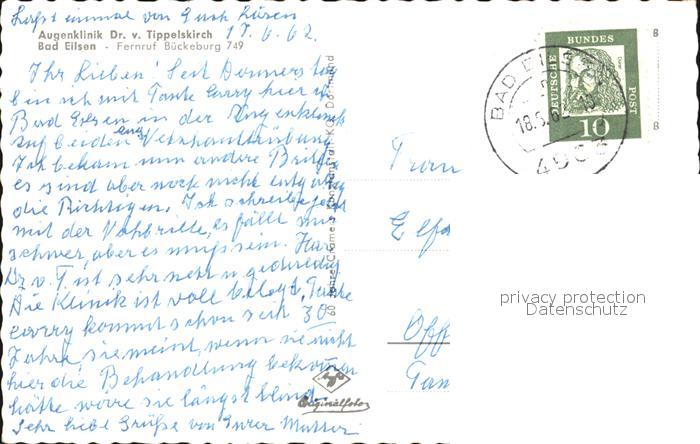 Lasst einmal von Euch hören
17.6.62.
Augenklinik Dr. v. Tippelskirch
Bad Eilsen - Fernruf Bückeburg 749
Ihr Lieben! Seit Donnerstag
bin ich mit Tante Corry hier in
Bad Eilsen in der Augenklinik
auf beiden Augen
Ich bekam nun andere Brille
es sind aber noch nicht
die Richtigen. Ich schreibe jetzt
mit der es fällt mir
schwer, aber es muss sein. Herr
Dr. v. T. ist sehr nett u. geduldig
Die Klinik ist voll belegt, Tante
Corry kommt schon seit 30
Jahre, sie meint, wenn sie nicht
hier die Behandlung bekommen
hätte wäre sie längst blind.
Sehr liebe Grüße von Eurer Mutter
60 Jahre Cramers Kunstanstalt KG, Dortmund
Originalfoto
DEUTSCHE
BUNDES
POST
10
8
8
BAD EILSEN
18.6.62.